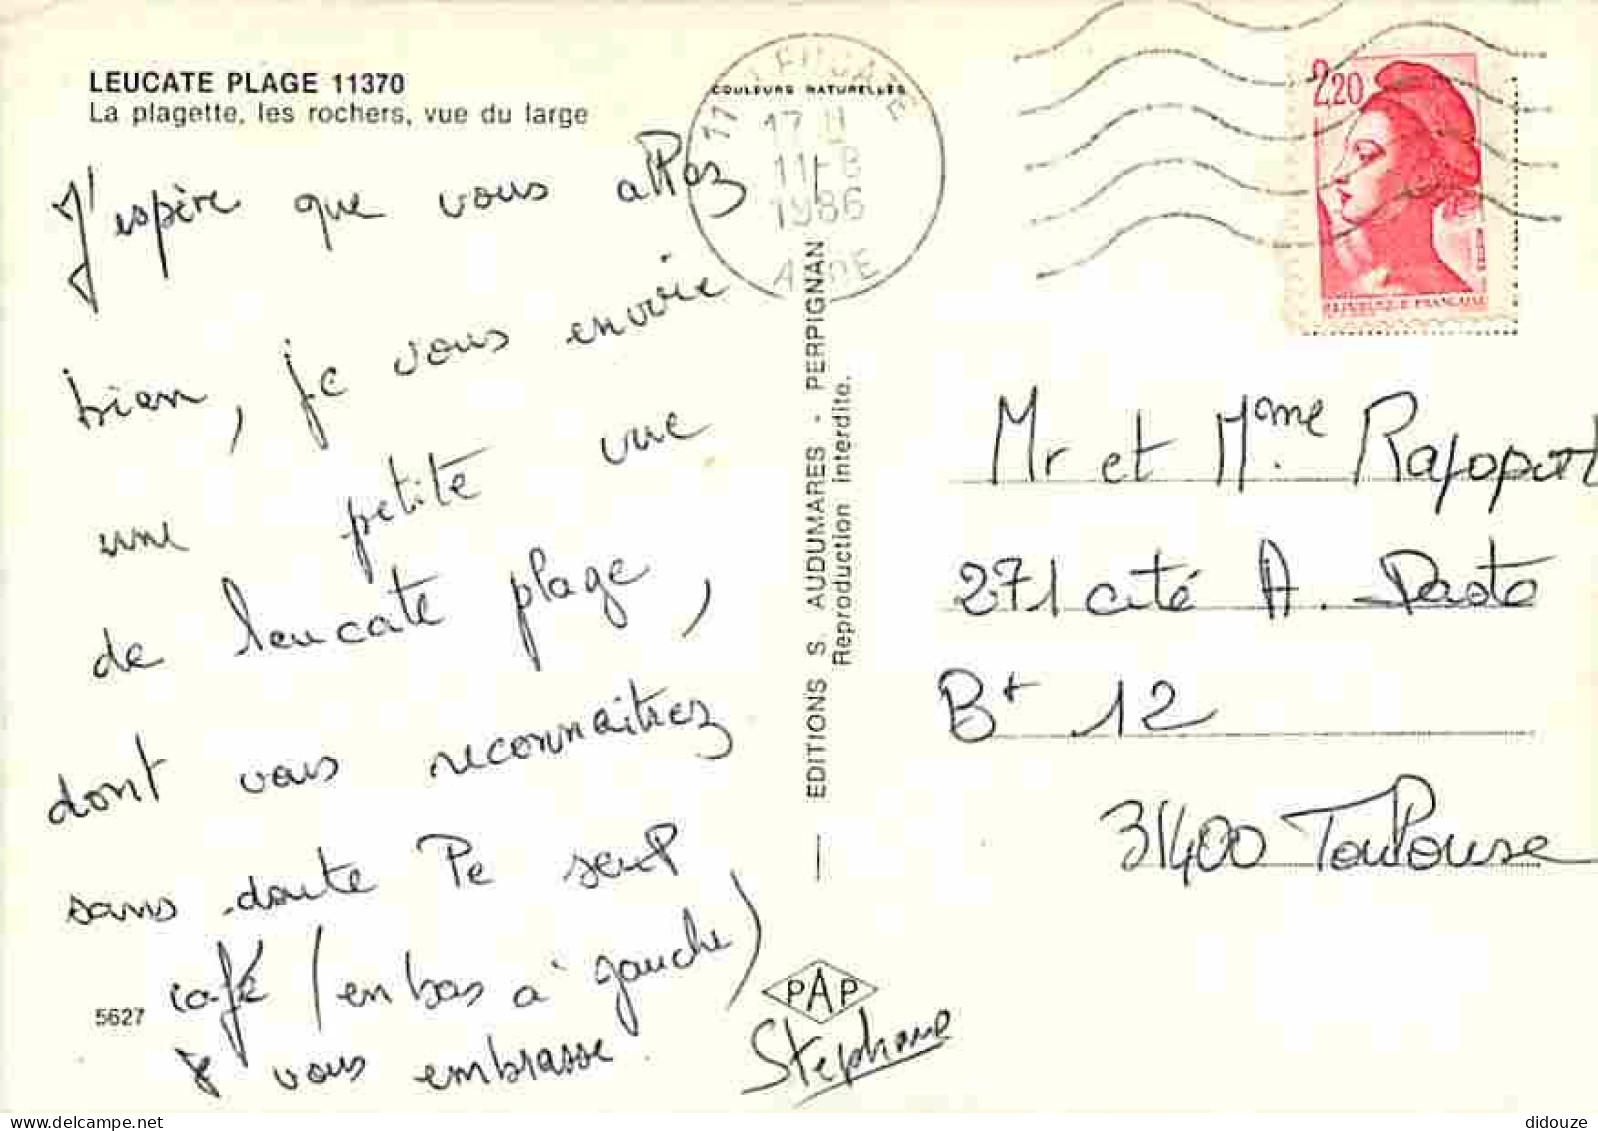 LEUCATE PLAGE 11370
La plagette, les rochers, vue du large
J'espère que vous allez
bien, je vous envoie
une petite vue
de leucate plage,
dont vous reconnaitrez
sans doute le seul
café (en bas à gauche)
Je vous embrasse.
Stéphane
5627
PAP
EDITIONS S. AUDUMARES - PERPIGNAN
Reproduction interdite.
COULEURS NATURELLES
17 H
11-8
1986
AUDE
2,20
REPUBLIQUE FRANÇAISE
Mr et Mme Rapoport
271 cité A.
Bt 12
31400 Toulouse
didouze